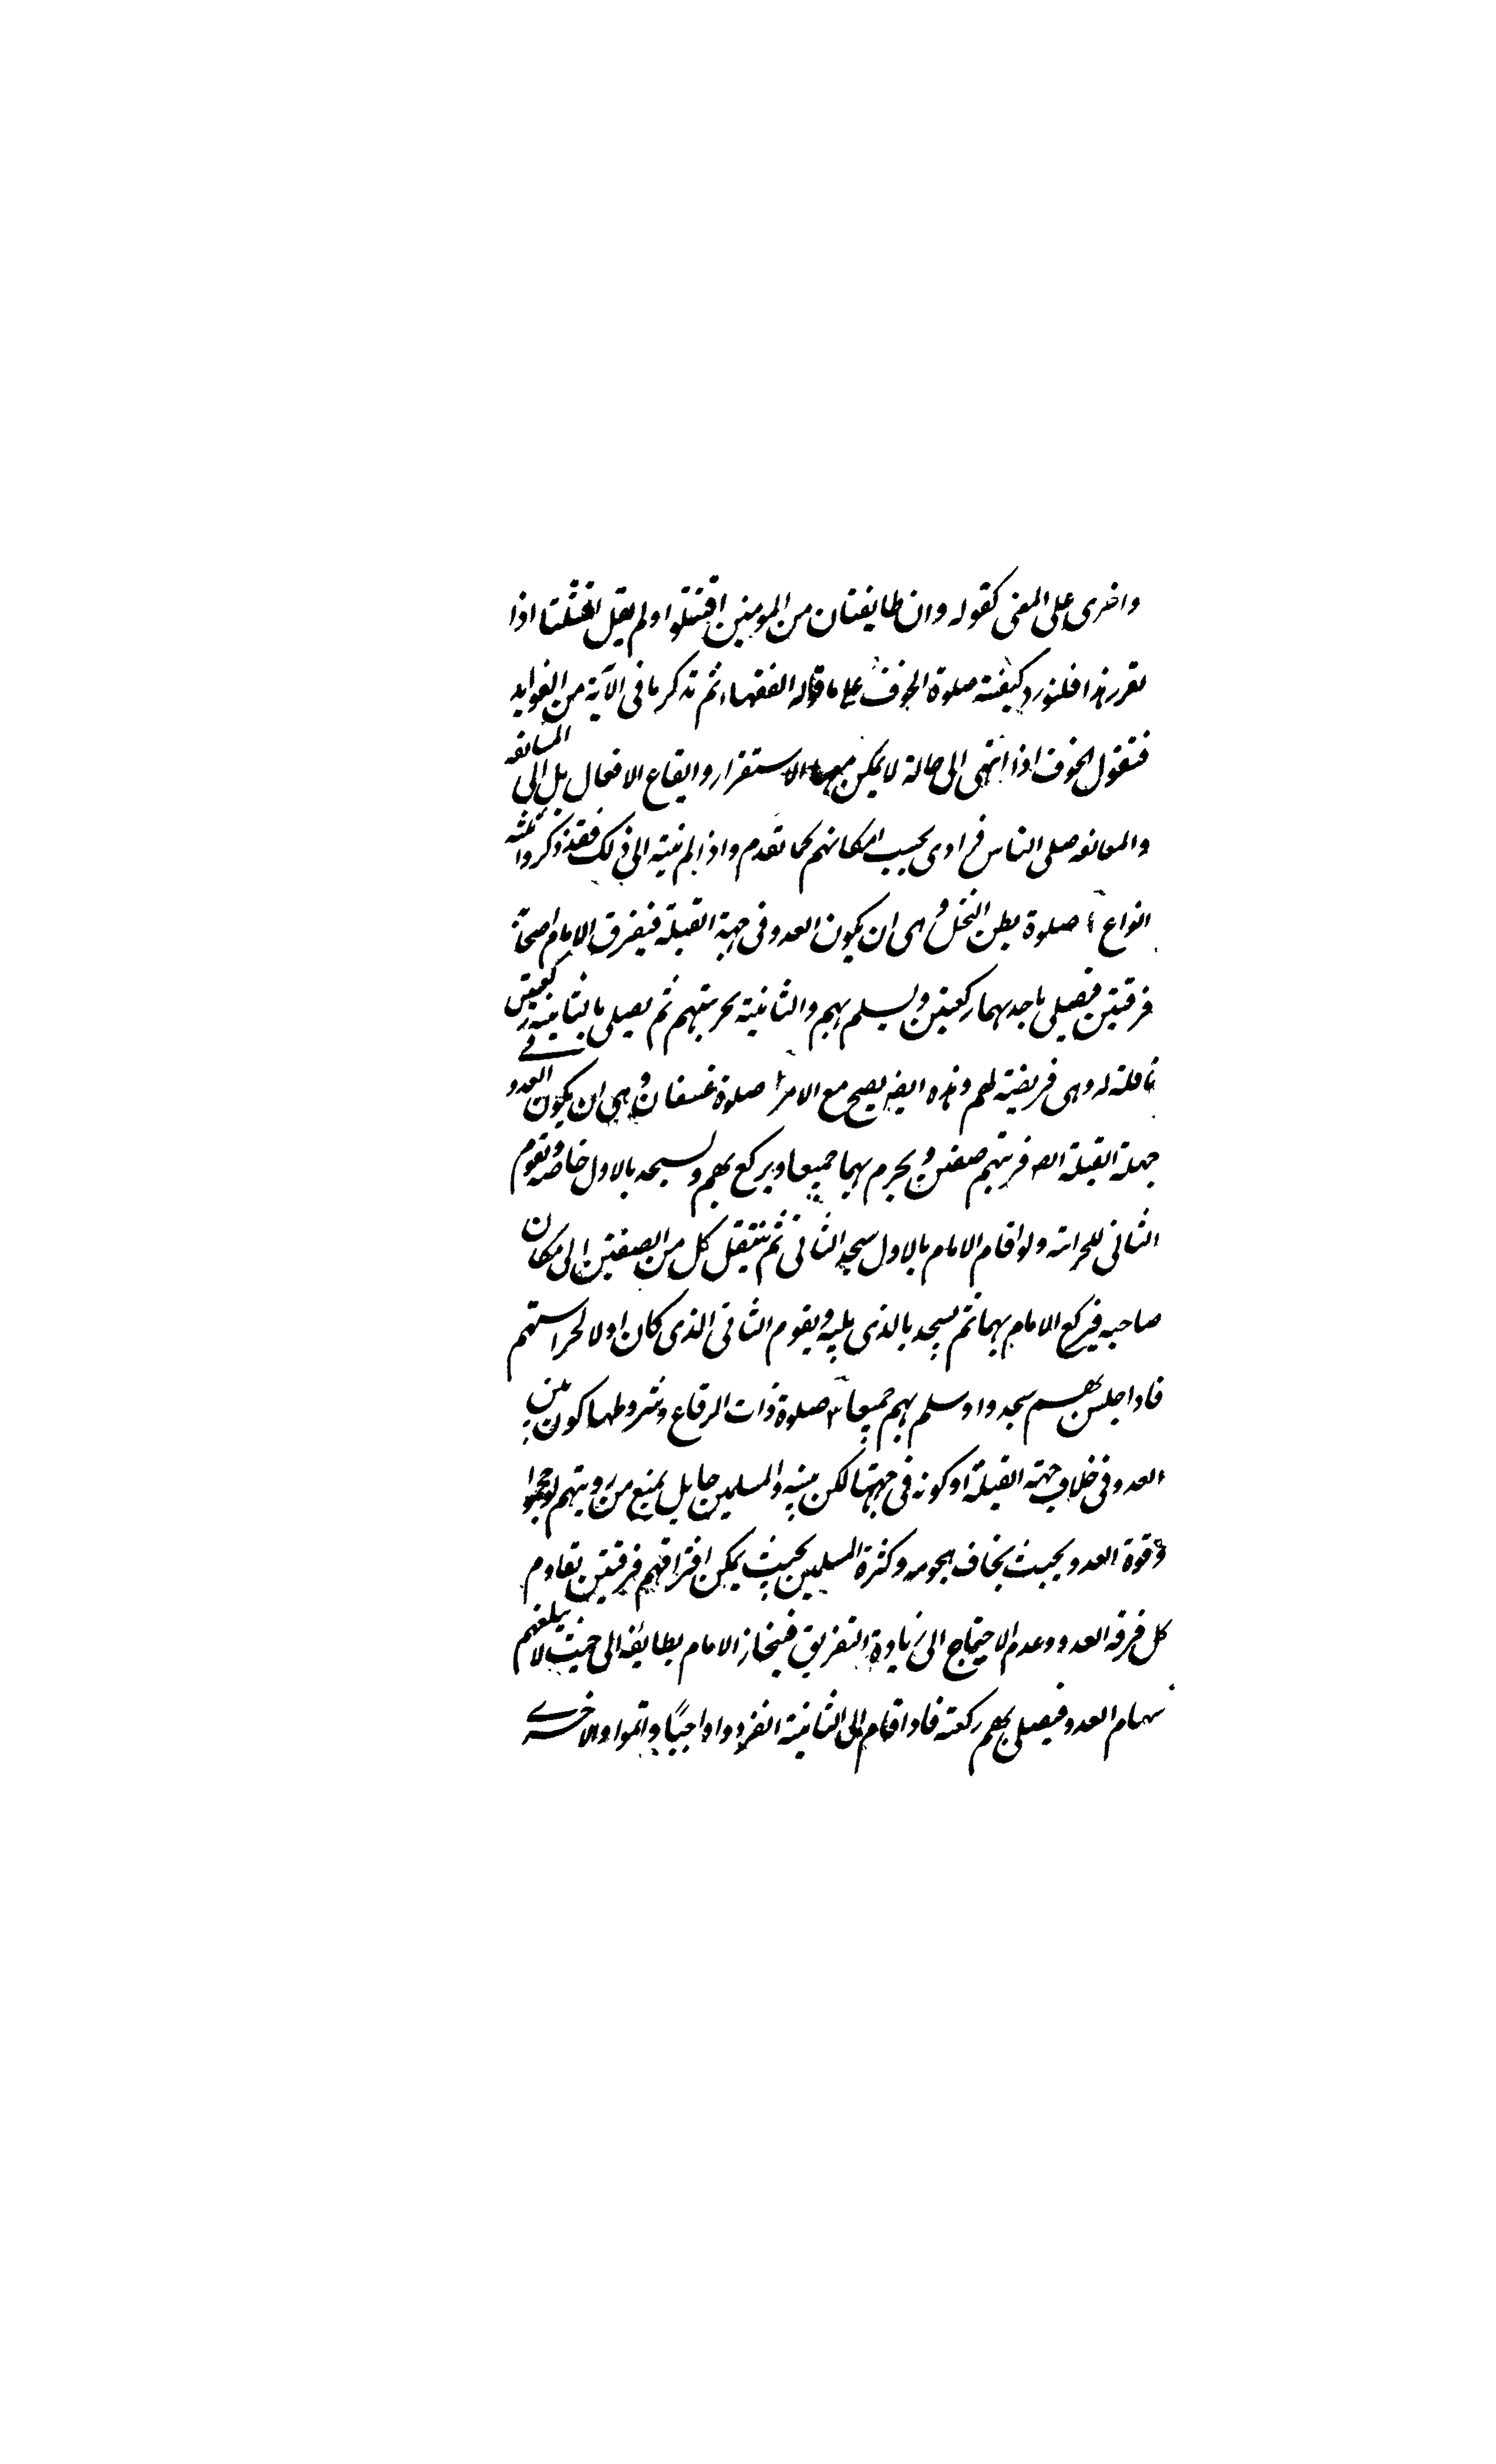 واخرى على المعنى كقوله وان طايفتان من المومنين اقتتلوا ولم يقل اقتتلتا اذا
تقرر هذا فلنورد كيفية صلوة الخوف على ما قاله الفقهاء ثم نذكر ما فى الآية من الفوايد
فنقول الخوف اذا انتهى الى حالة لا يمكن معها الاستقرار وايقاع الافعال بل الى المسايفه
والمعانقه صلى الناس فرادى بحسب امكانهم كما تقدم واذا لم ينته الى ذلك فقد ذكروا ثلثه
انواع ١ صلوة بطن النخل وهى ان يكون العدو فى جهة القبلة فيفرق الامام اصحابه
فرقتين فيصلى باحديهما ركعتين ويسلم بهم والثانية تحرسهم ثم يصلى بالثانية ركعتين
نافلة له وهى فريضة لهم وهذه ايضا يصح مع الامن ٢ صلوة عسفان وهى ان يكون العدو فى
جهة القبلة ايضا فرتبهم صفين ويحرم بهما جميعا ويركع بهم ويسجد بالاول خاصة ويقوم
الثانى للحراسة ولو اقام الامام بالاول سجد الثانى ثم ينتقل كل من الصفين الى مكان
صاحبه فيركع الامام بهما ثم يسجد بالذى يليه ويقوم الثانى الذى كان اولا لحراستهم
فاذا جلس بهم سجدوا وسلم بهم جميعا ٣ صلوة ذات الرقاع وشروطها كون
العدو فى خلاف جهة القبلة او كونه فى جهتها لكن بينه والمسلمين حايل يمنع من رويتهم لو هجموا
وقوة العدو بحيث يخاف هجومه وكثرة المسلمين بحيث يمكن افتراقهم فرقتين تقاوم
كل فرقه العدو وعدم الاحتياج الى زيادة التفريق فينحاز الامام بطايفة الى حيث لا يبلغهم
سهام العدو فيصلى بهم ركعة فاذا قام الى الثانية انفردوا واجبًا واتموا والاخرى